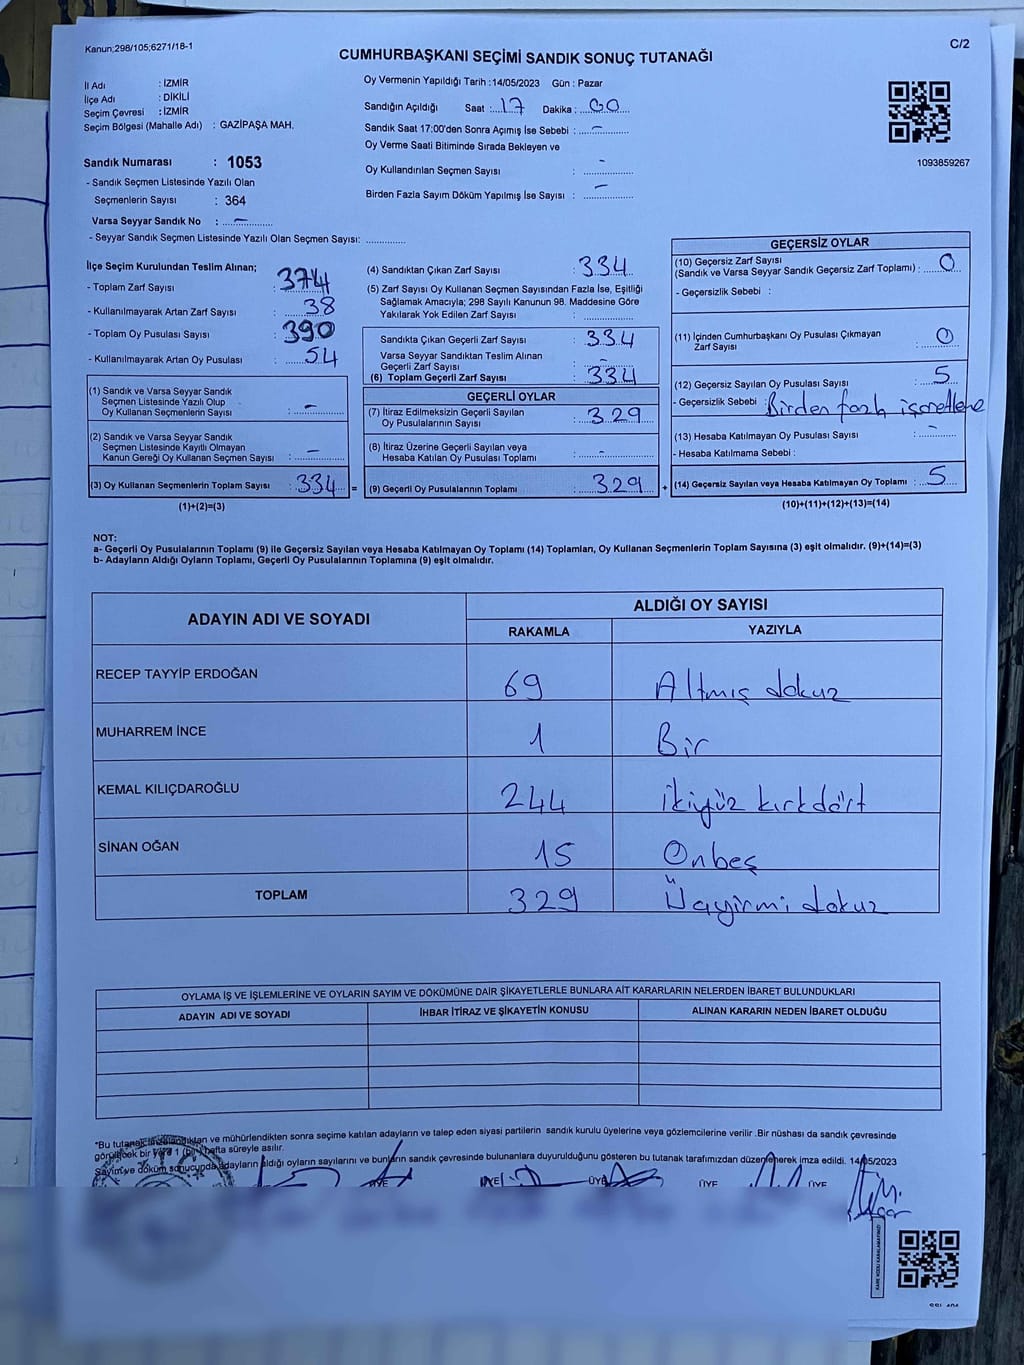 Kanun;298/105;6271/18-1
C/2
CUMHURBAŞKANI SEÇİMİ SANDIK SONUÇ TUTANAĞI
İl Adı : İZMİR
İlçe Adı : DİKİLİ
Seçim Çevresi : İZMİR
Seçim Bölgesi (Mahalle Adı) : GAZİPAŞA MAH.
Sandık Numarası : 1053
- Sandık Seçmen Listesinde Yazılı Olan
Seçmenlerin Sayısı : 364
Varsa Seyyar Sandık No : –
- Seyyar Sandık Seçmen Listesinde Yazılı Olan Seçmen Sayısı: ..............
Oy Vermenin Yapıldığı Tarih :14/05/2023 Gün : Pazar
Sandığın Açıldığı Saat :17 Dakika : 00
Sandık Saat 17:00'den Sonra Açımış İse Sebebi : –
Oy Verme Saati Bitiminde Sırada Bekleyen ve
Oy Kullandırılan Seçmen Sayısı : –
Birden Fazla Sayım Döküm Yapılmış İse Sayısı : –
1093859267
İlçe Seçim Kurulundan Teslim Alınan;
- Toplam Zarf Sayısı : 374
- Kullanılmayarak Artan Zarf Sayısı : 38
- Toplam Oy Pusulası Sayısı : 390
- Kullanılmayarak Artan Oy Pusulası : 54
(1) Sandık ve Varsa Seyyar Sandık
Seçmen Listesinde Yazılı Olup
Oy Kullanan Seçmenlerin Sayısı : –
(2) Sandık ve Varsa Seyyar Sandık
Seçmen Listesinde Kayıtlı Olmayan
Kanun Gereği Oy Kullanan Seçmen Sayısı : –
(3) Oy Kullanan Seçmenlerin Toplam Sayısı : 334 =
(1)+(2)=(3)
(4) Sandıktan Çıkan Zarf Sayısı : 334
(5) Zarf Sayısı Oy Kullanan Seçmen Sayısından Fazla İse, Eşitliği
Sağlamak Amacıyla; 298 Sayılı Kanunun 98. Maddesine Göre
Yakılarak Yok Edilen Zarf Sayısı : ..............
Sandıkta Çıkan Geçerli Zarf Sayısı : 334
Varsa Seyyar Sandıktan Teslim Alınan
Geçerli Zarf Sayısı : –
(6) Toplam Geçerli Zarf Sayısı : 334
GEÇERLİ OYLAR
(7) İtiraz Edilmeksizin Geçerli Sayılan
Oy Pusulalarının Sayısı : 329
(8) İtiraz Üzerine Geçerli Sayılan veya
Hesaba Katılan Oy Pusulası Toplamı : –
(9) Geçerli Oy Pusulalarının Toplamı : 329 +
GEÇERSİZ OYLAR
(10) Geçersiz Zarf Sayısı
(Sandık ve Varsa Seyyar Sandık Geçersiz Zarf Toplamı) : 0
- Geçersizlik Sebebi :
(11) İçinden Cumhurbaşkanı Oy Pusulası Çıkmayan
Zarf Sayısı : 0
(12) Geçersiz Sayılan Oy Pusulası Sayısı : 5
- Geçersizlik Sebebi : Birden fazla işaretleme
(13) Hesaba Katılmayan Oy Pusulası Sayısı : –
- Hesaba Katılmama Sebebi :
(14) Geçersiz Sayılan veya Hesaba Katılmayan Oy Toplamı : 5
(10)+(11)+(12)+(13)=(14)
NOT:
a- Geçerli Oy Pusulalarının Toplamı (9) ile Geçersiz Sayılan veya Hesaba Katılmayan Oy Toplamı (14) Toplamları, Oy Kullanan Seçmenlerin Toplam Sayısına (3) eşit olmalıdır. (9)+(14)=(3)
b- Adayların Aldığı Oyların Toplamı, Geçerli Oy Pusulalarının Toplamına (9) eşit olmalıdır.
ADAYIN ADI VE SOYADI ALDIĞI OY SAYISI
RAKAMLA YAZIYLA
RECEP TAYYİP ERDOĞAN 69 Altmış dokuz
MUHARREM İNCE 1 Bir
KEMAL KILIÇDAROĞLU 244 ikiyüz kırkdört
SİNAN OĞAN 15 Onbeş
TOPLAM 329 Üçyüzyirmi dokuz
OYLAMA İŞ VE İŞLEMLERİNE VE OYLARIN SAYIM VE DÖKÜMÜNE DAİR ŞİKAYETLERLE BUNLARA AİT KARARLARIN NELERDEN İBARET BULUNDUKLARI
ADAYIN ADI VE SOYADI İHBAR İTİRAZ VE ŞİKAYETİN KONUSU ALINAN KARARIN NEDEN İBARET OLDUĞU
"Bu tutanak imzalandıktan ve mühürlendikten sonra seçime katılan adayların ve talep eden siyasi partilerin sandık kurulu üyelerine veya gözlemcilerine verilir .Bir nüshası da sandık çevresinde
görülecek bir yere 1 (bir) hafta süreyle asılır.
Sayım ve döküm sonucunda adayların aldığı oyların sayılarını ve bunların sandık çevresinde bulunanlara duyurulduğunu gösteren bu tutanak tarafımızdan düzenlenerek imza edildi. 14/05/2023
ÜYE ÜYE ÜYE ÜYE ÜYE